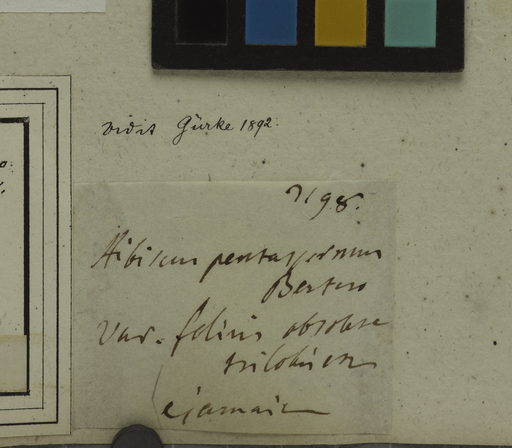 vidit Gürke 1892.
2198.
Hibiscus pentaspermus
Bertero
var. foliis obsolete
trilobis
e jamaica